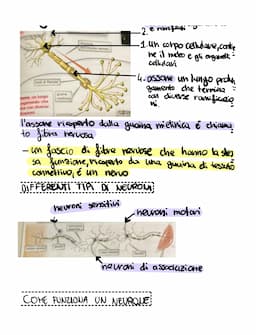 2.
1. un corpo cellulare, contie
ne il nucleo e gli organelli
cellulari
4. assone un lungo prolun
gamento che termina
con diverse ramificazio
ni
l'assone ricoperto dalla guaina mielinica è chiama
to fibra nervosa
- un fascio di fibre nervose che hanno la stes
sa funzione, ricoperto da una guaina di tessuto
connettivo, è un nervo
DIFFERENTI TIPI DI NEURONI:
neuroni sensitivi
neuroni motori
neuroni di associazione
COME FUNZIONA UN NEURONE: